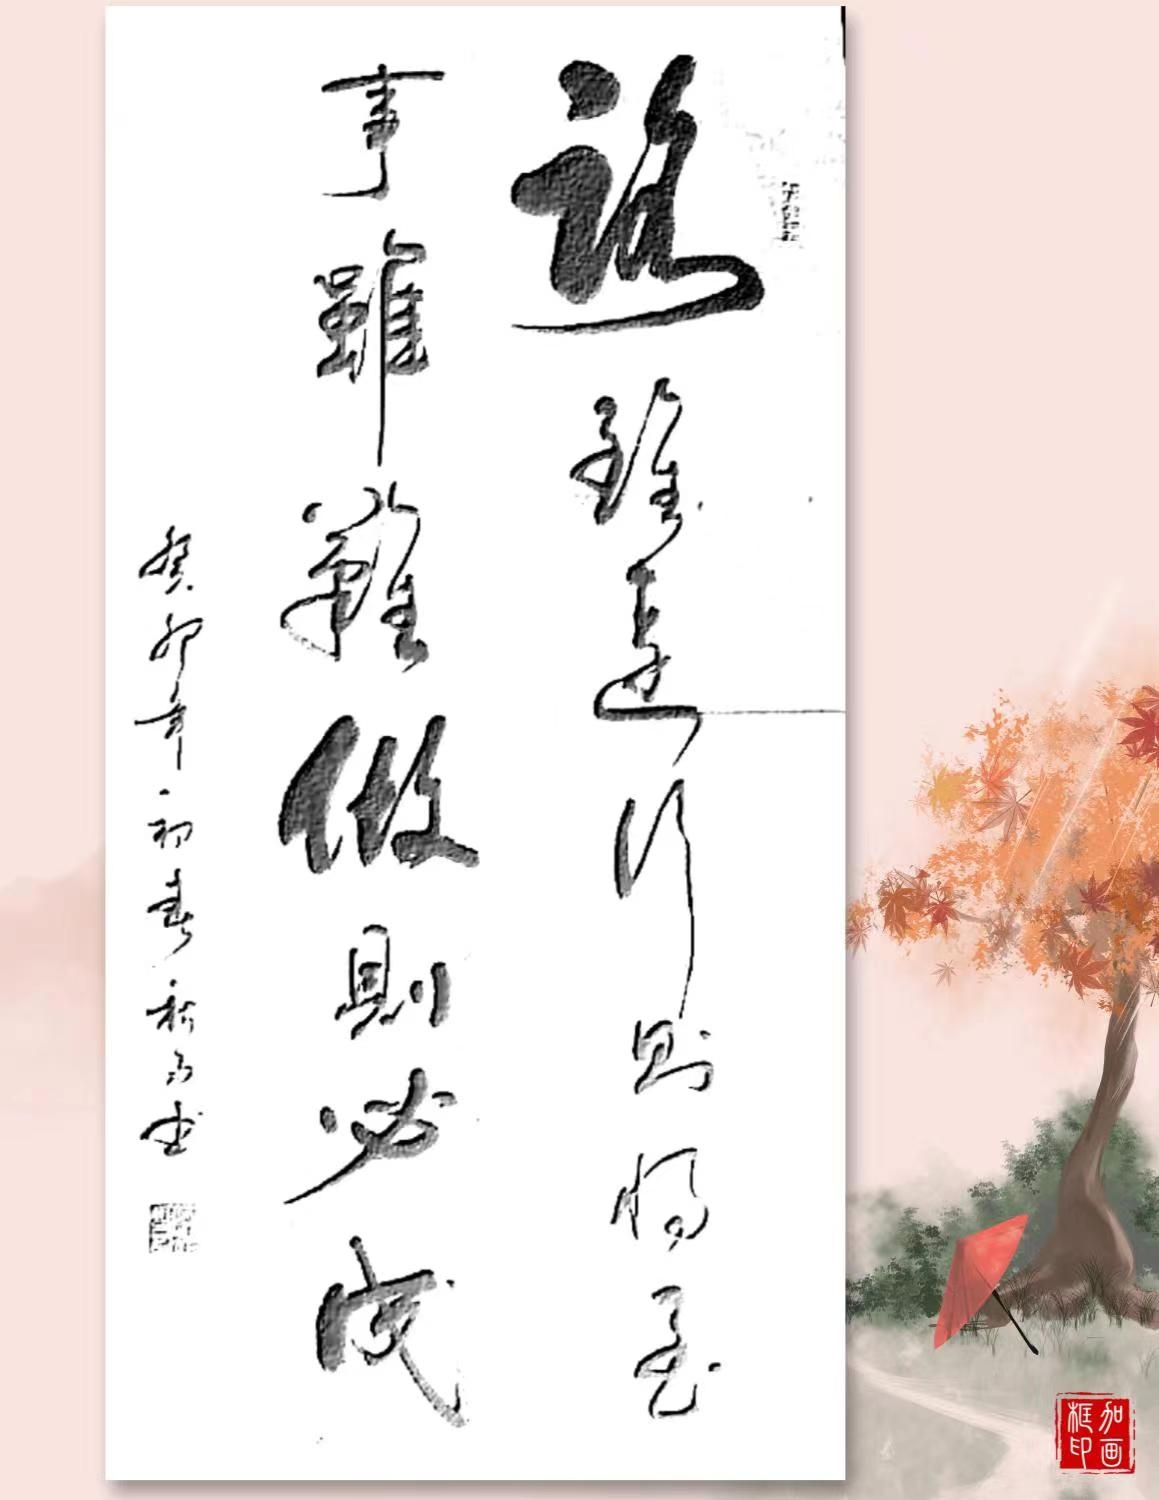 路雖遠行則將至
事雖難做則必成
癸卯年初春
加画
框印